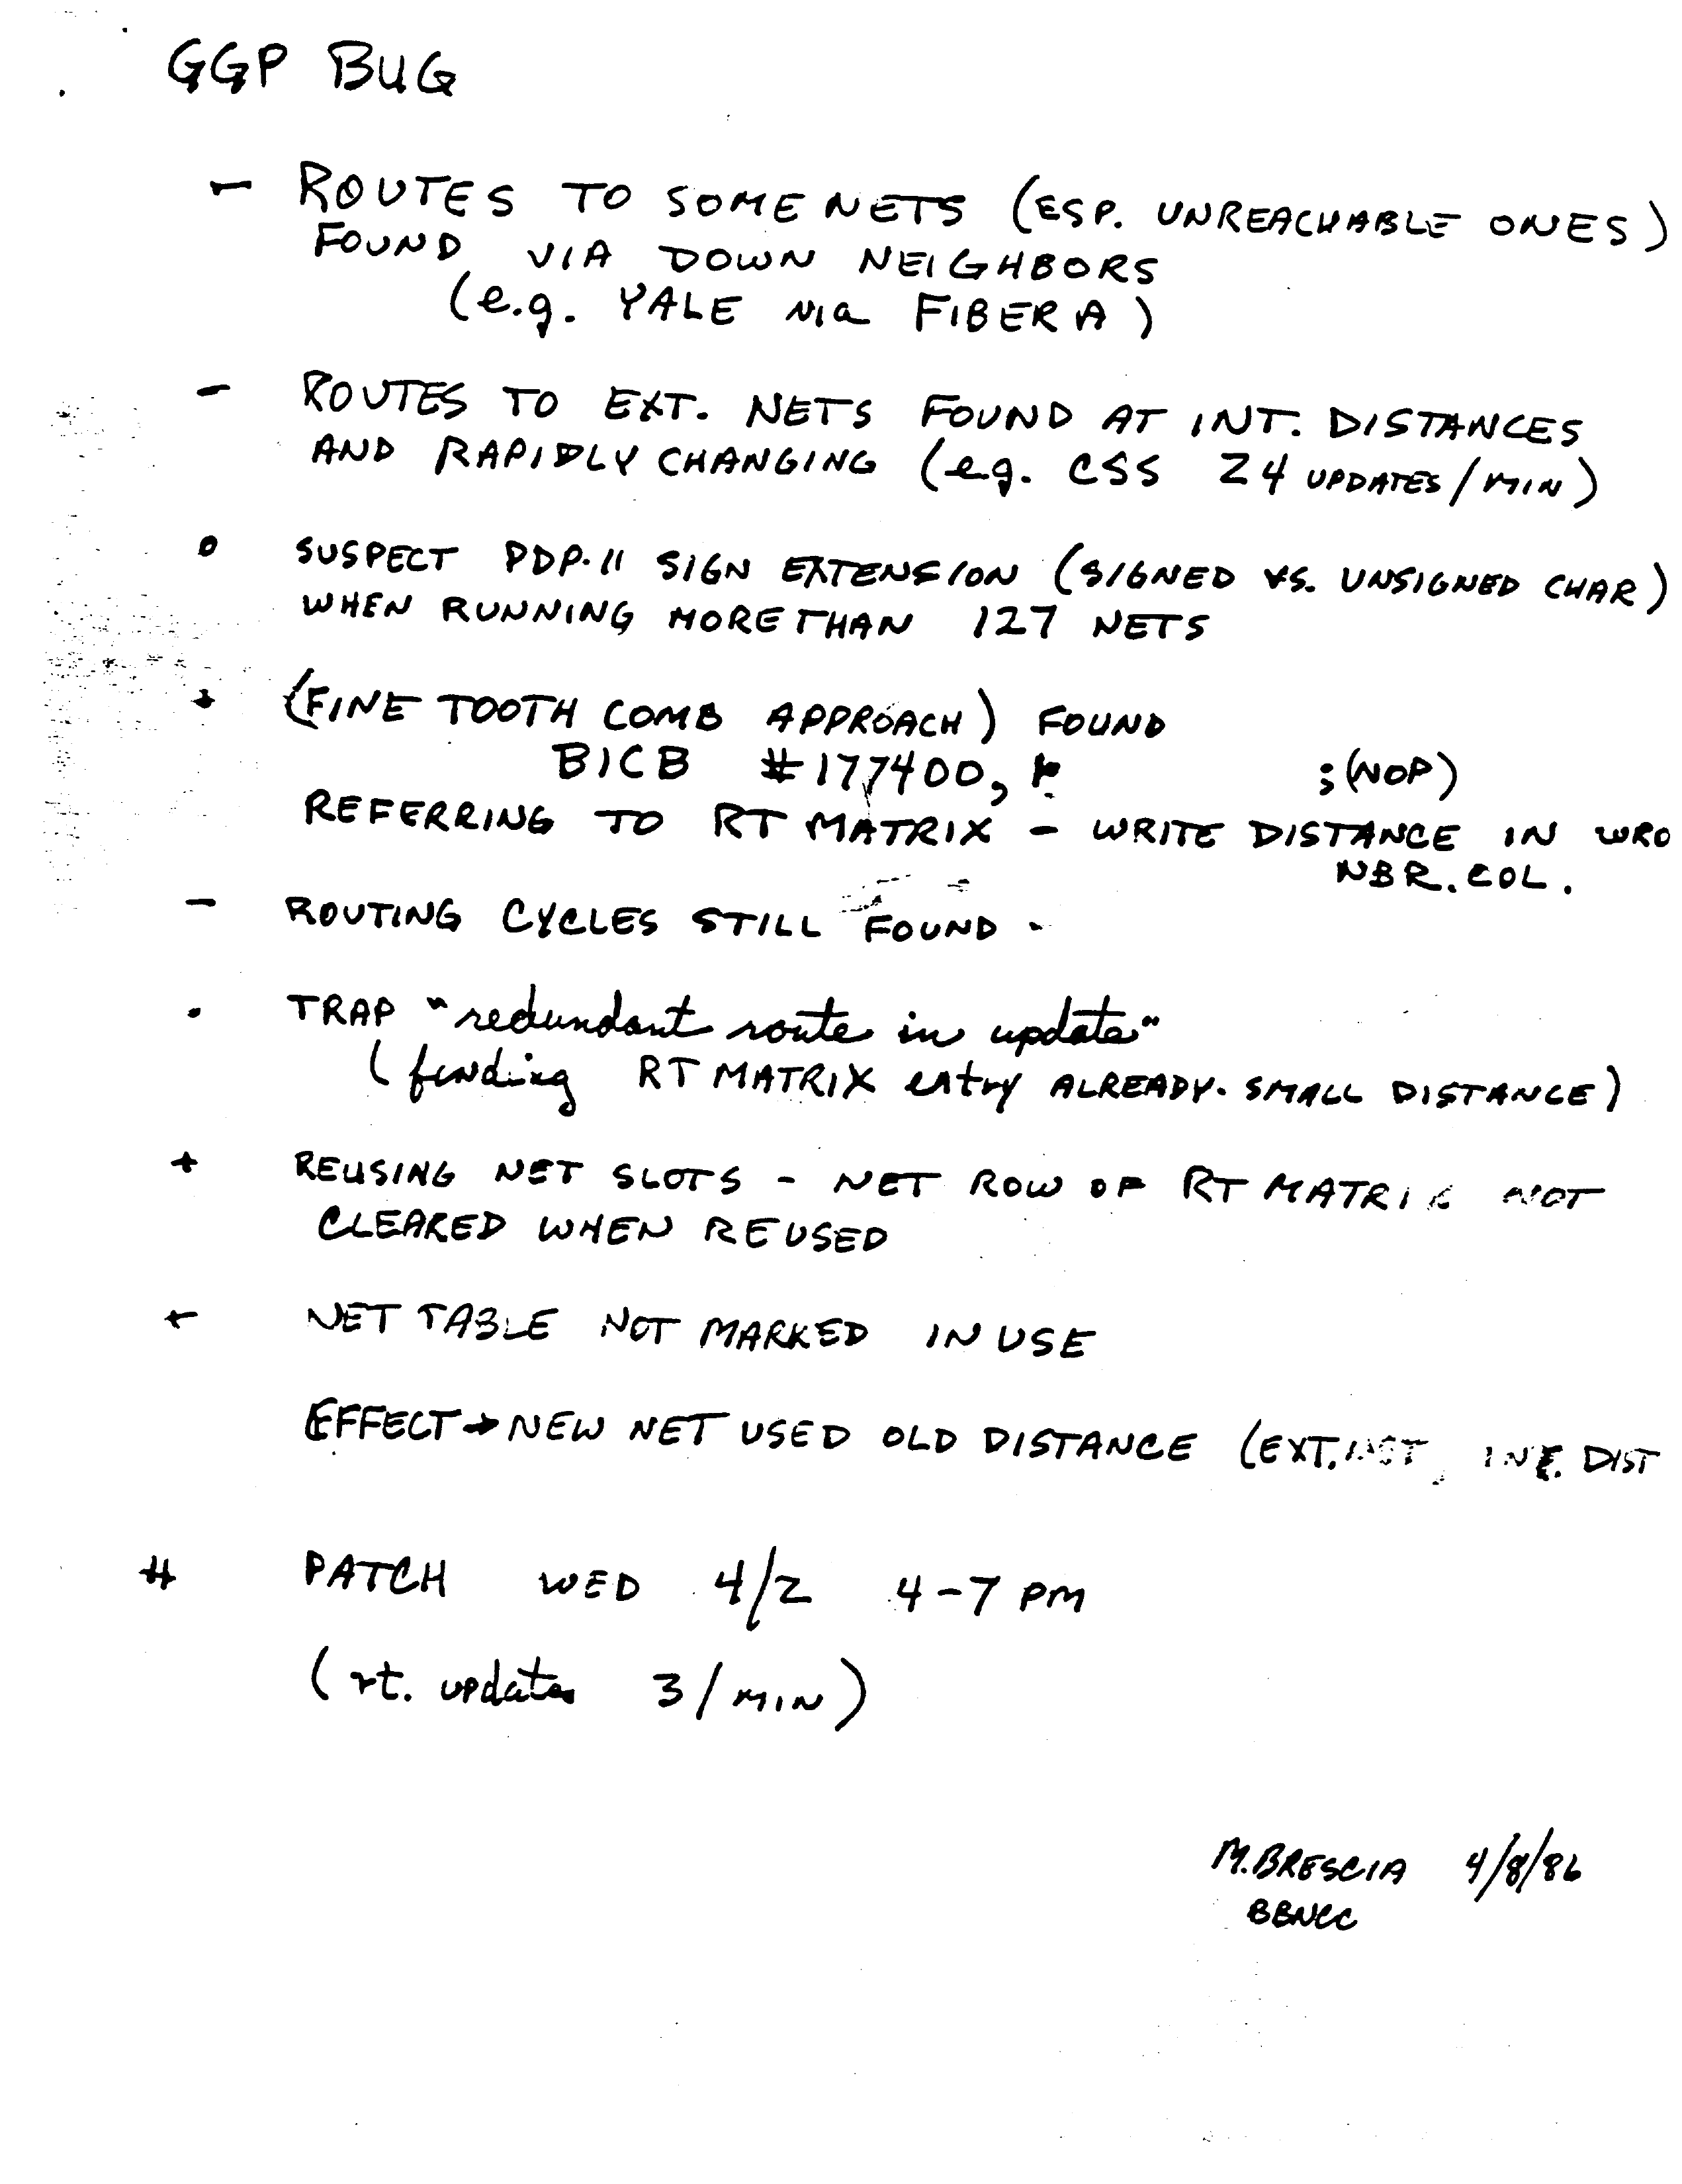 GGP BUG
- ROUTES TO SOME NETS (ESP. UNREACHABLE ONES)
FOUND VIA DOWN NEIGHBORS
(e.g. YALE via FIBER A)
- ROUTES TO EXT. NETS FOUND AT INT. DISTANCES
AND RAPIDLY CHANGING (e.g. CSS 24 UPDATES/MIN)
o SUSPECT PDP-11 SIGN EXTENSION (SIGNED VS. UNSIGNED CHAR)
WHEN RUNNING MORE THAN 127 NETS
+ (FINE TOOTH COMB APPROACH) FOUND
BICB #177400, ;(NOP)
REFERRING TO RT MATRIX - WRITE DISTANCE IN WRO
NBR. COL.
- ROUTING CYCLES STILL FOUND -
. TRAP "redundant route in update"
(finding RT MATRIX entry ALREADY. SMALL DISTANCE)
+ REUSING NET SLOTS - NET ROW OF RT MATRIX NOT
CLEARED WHEN REUSED
+ NET TABLE NOT MARKED IN USE
EFFECT → NEW NET USED OLD DISTANCE (EXT. DIST
# PATCH WED 4/2 4-7 PM
(rt. updates 3/MIN)
M. BRESCIA 4/8/86
BBNCC